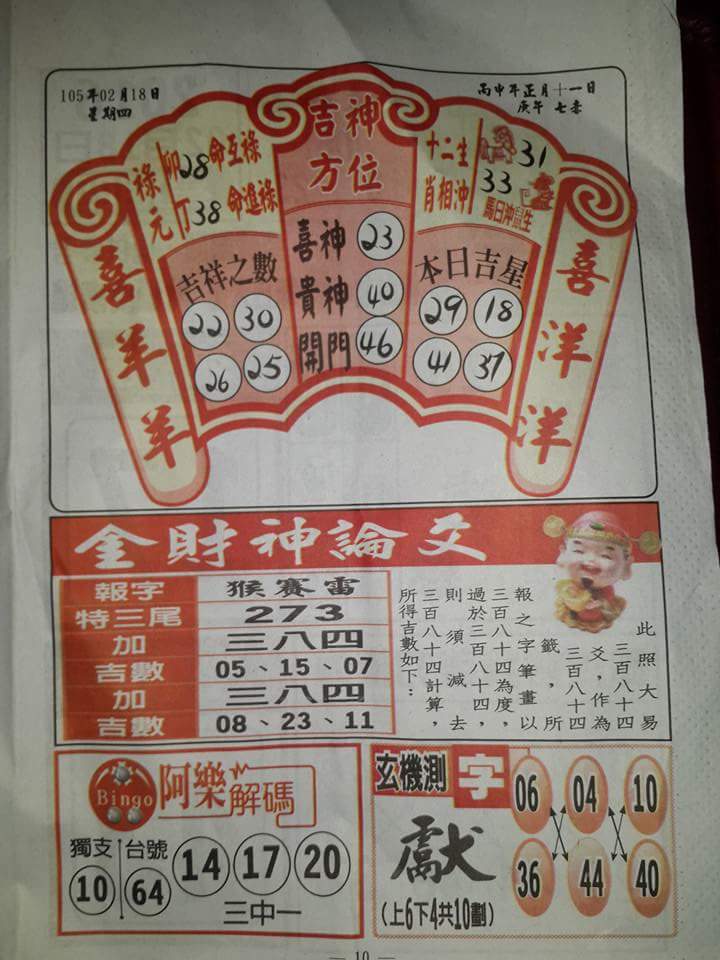 105年02月18日
星期四
丙申年正月十一日
庚午 七赤
吉神
方位
喜神 23
貴神 40
開門 46
祿元
卯28命互祿
丁38命進祿
吉祥之數
22 30
26 25
十二生
肖相沖
31
33
馬日沖鼠生
本日吉星
29 18
41 37
喜羊羊
喜洋洋
金財神論爻
報字 猴賽雷
特三尾 273
加 三八四
吉數 05、15、07
加 三八四
吉數 08、23、11
此照大易
三百八十四
爻，作為
三百八十四
籤，所
報之字筆畫以
三百八十四為度，
過於三百八十四，
則須減去
三百八十四計算，
所得吉數如下：
Bingo 阿樂解碼
獨支 10
台號 64
14 17 20
三中一
玄機測字
獻
(上6下4共10劃)
06 04 10
36 44 40
— 10 —